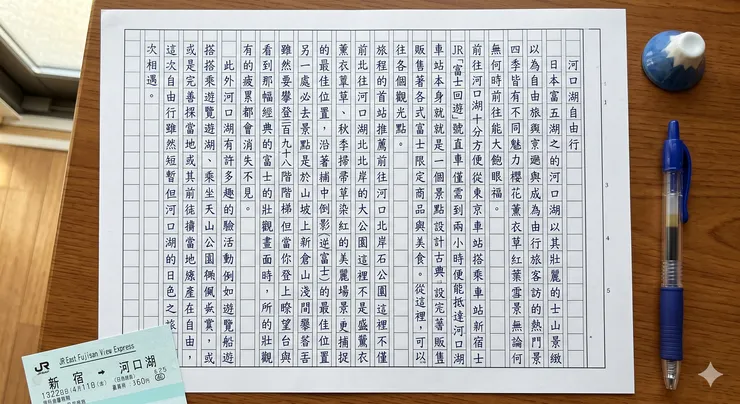 河口湖自由行
日本富五湖之之河口湖以其壯麗的士山景緻
以為自由旅與京邊與成為由行旅客訪的熱門景
四季皆有不同魅力櫻花薰衣草紅葉雪景無論何
無何時前往能大飽眼福。
前往河口湖十分方便從東京車站搭乘車站新宿士
JR「富士回遊」號直車僅需到兩小時便能抵達河口湖
車站本身就就是一個景點設計古典設完著販售
販售著各式富士限定商品與美食。從這裡,可以
往各個觀光點。
旅程的首站推薦前往河口北岸石公園這裡不僅
前北往河口湖北北岸的大公園這裡不是盛薰衣
薰衣蕈草、秋季掃帚草染紅的美麗場景更捕捉
的最佳位置,沿著補中倒影(逆富士)的最佳位置
另一處必去景點是於山坡上新倉山淺間
雖然要攀登三百九十八階階梯但當你登上瞭望台與
看到那幅經典的富士的壯觀畫面時,所的壯觀
有的疲累都會消失不見。
此外河口湖有許多趣的驗活動例如遊覽船遊
搭搭乘遊覽遊湖、乘坐天山公園賞,或
或是完善探當地或其前徒擕當地產在自由,
這次自由行雖然短暫但河口湖的日色之旅
次相遇。
JR East Fujisan View Express
JR
新宿 → 河口湖
4月11日
3
5